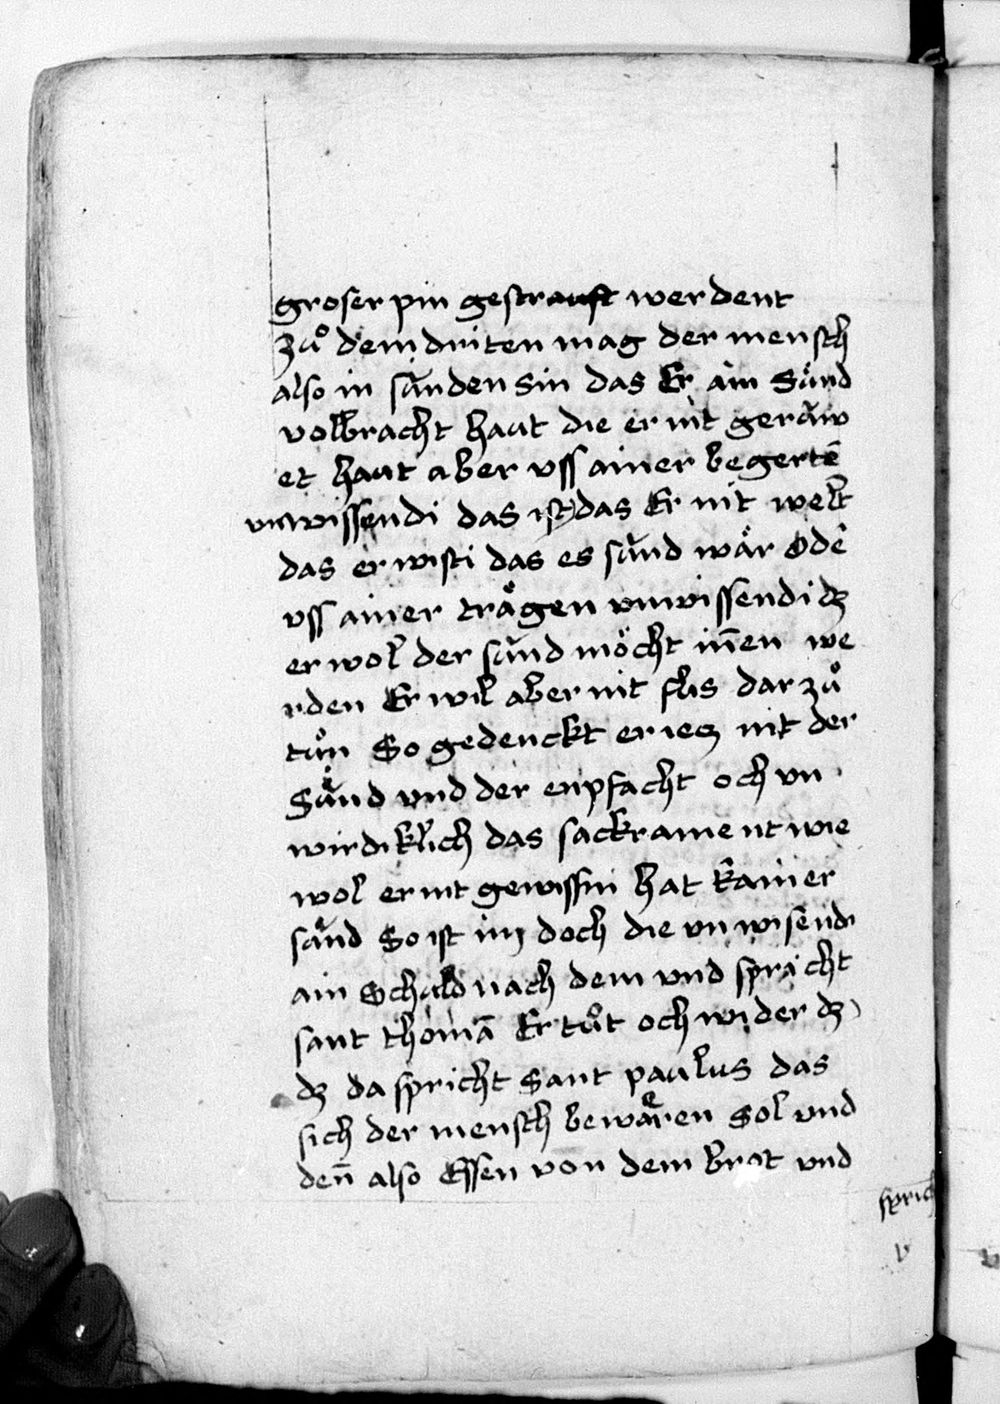 groser pin gestrauft werdent
zuͦ dem driten mag der mensch
also in sünden sin das Er ain Sünd
volbracht haut die er nit gerüw
et haut aber uss ainer begertē
unwissendi das ist das Er nit welt
das er wisti das es sünd wär odē
uss ainer trägen unwissendi dz
er wol der sünd möcht iñen we
rden Er wil aber nit flis dar zuͦ
tuͦn So gedenckt er iecz nit der
Sünd und der enpfacht och un
wirdiklich das sackrament wie
wol er nit gewissni hat kainer
sünd So ist im doch die unwisendi
ain Schuld nach dem und spricht
sant thomā Er tuͦt och wider dz
dz da spricht Sant paulus das
sich der mensch bewären Sol und
deñ also Essen von dem brot und
sprich
v